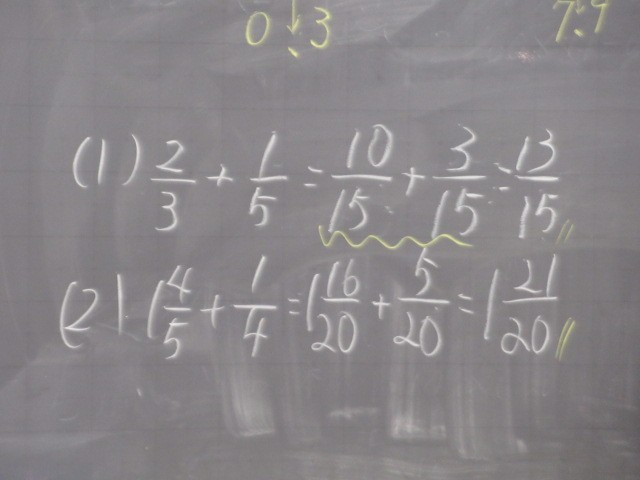 0.3 7.9
(1) 2/3 + 1/5 = 10/15 + 3/15 = 13/15
(2) 1 4/5 + 1/4 = 1 16/20 + 5/20 = 1 21/20